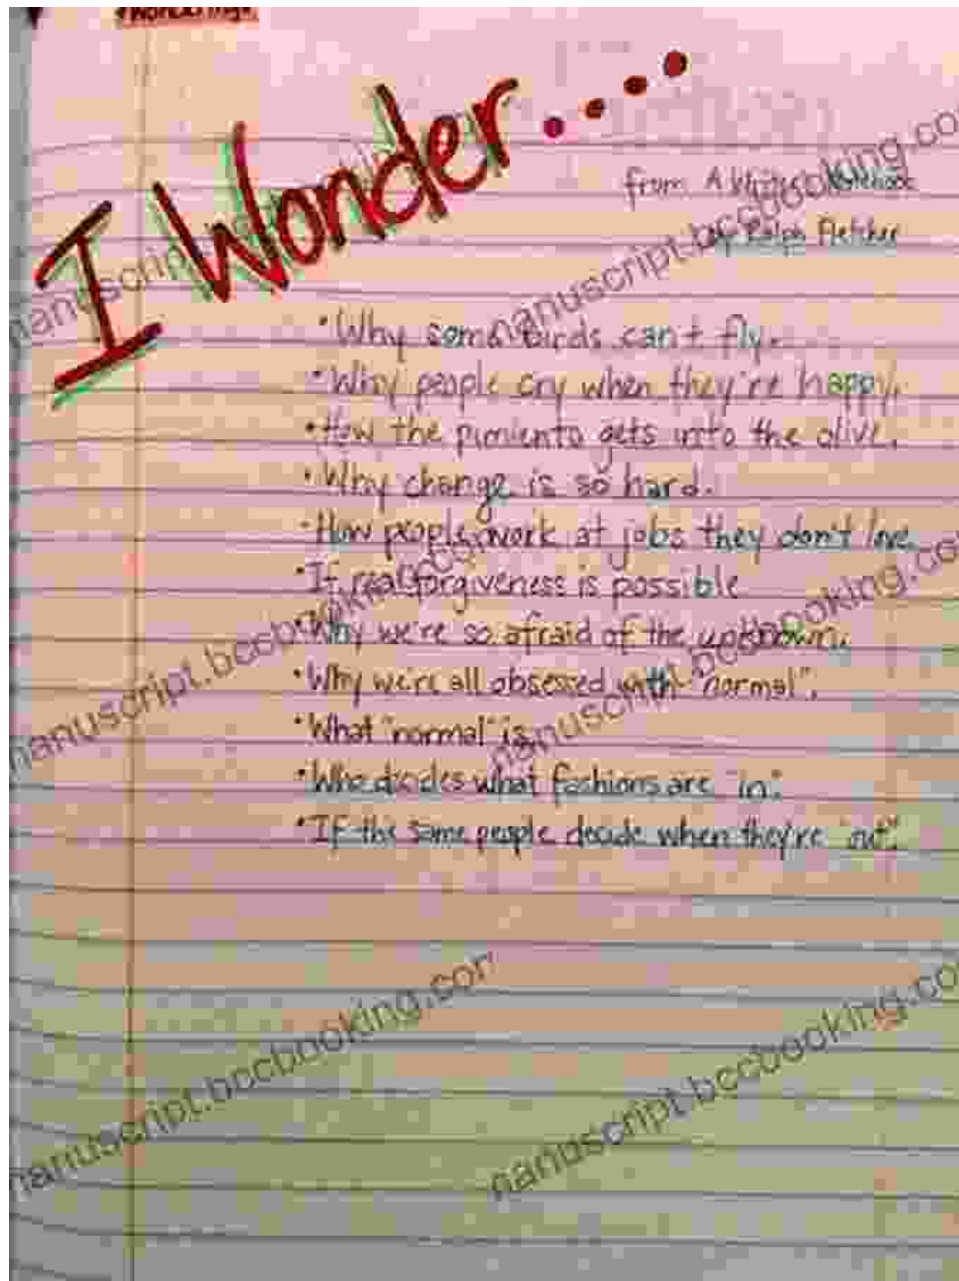 Wonderings
I Wonder....
from A Writer's Notebook
by Ralph Fletcher
• Why some birds can't fly.
• Why people cry when they're happy.
• How the pimiento gets into the olive.
• Why change is so hard.
• How people work at jobs they don't love.
• If real forgiveness is possible
• Why we're so afraid of the unknown.
• Why we're all obsessed with "normal".
• What "normal" is.
• Who decides what fashions are "in".
• If the same people decide when they're "out".
manuscript.bccbooking.com
manuscript.bccbooking.com
manuscript.bccbooking.com
manuscript.bccbooking.com
manuscript.bccbooking.com
manuscript.bccbooking.com